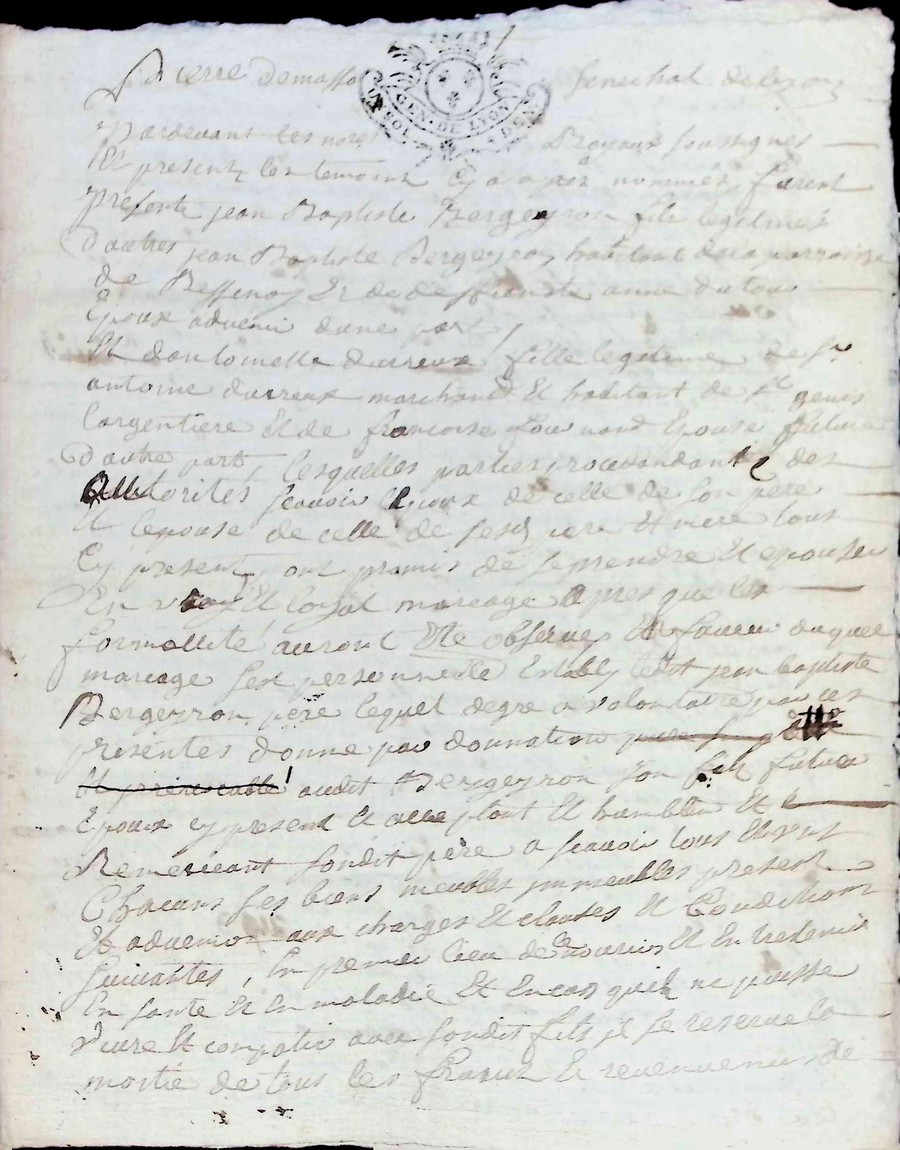 Pierre Demasso Senechal de Lyon
GEN. DE LYON
Pardevant les nores Royaux soussignes
Et presents les temoins cy apres nommés, furent
presents jean Baptiste Bergeyron fils legitime
d'autres jean Baptiste Bergeyron habitant dela parroisse
de Bessenay Et de deffuncte anne
Epoux advenir dune part,
Et dantoinette durreux fille legitime de Sr
antoine durreux marchand Et habitant de St genis
largentiere Et de francoise Epouse future
d'autre part, lesquelles parties procedandantes des
authorités scavoir lepoux de celle de son père
Et lepouse de celle de sesd père Et mere tous
Cy presents, ont promis de se prendre Et epouser
En vray Et loyal mareage apres que les
formallité auront Ete observes Et faveur duquel
mareage sest personnelle Estably ledit jean baptiste
Bergeyron père lequel degre a volontaire par ces
presentes donne par donnation
Et jrrevocable audit Bergeyron son fils futur
Epoux cy present Et acceptant Et humblem Et
Remerciant sondit père a scavoir tous Et uns
Chacuns ses biens meubles jmmeubles present
Et advenir aux charges Et clauses Et Condition
suivantes, En premier lieu de nourir Et Entretenir
En sante Et En maladie Et En cas quil ne pusse
vivre Et compatir avec sondit fils jl se reserve la
moitié de tous les fruict Et revenenus de